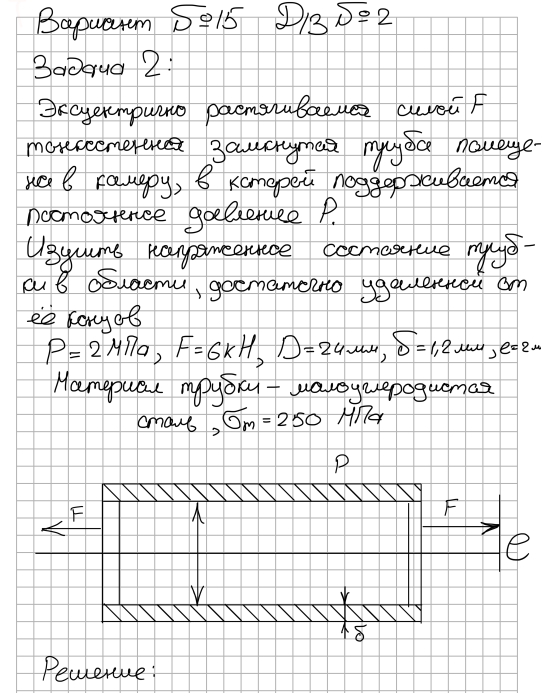 Вариант №15 ДЗ №2
Задача 2:
Эксцентрично растягиваемая силой F
тонкостенная замкнутая труба помеще-
на в камеру, в которой поддерживается
постоянное давление P.
Изучить напряженное состояние труб-
ки в области, достаточно удаленной от
её концов
P=2МПа, F=6кН, D=24мм, δ=1,2мм, e=2м
Материал трубки – малоуглеродистая
сталь, σт=250 МПа
P
F
F
e
δ
Решение: